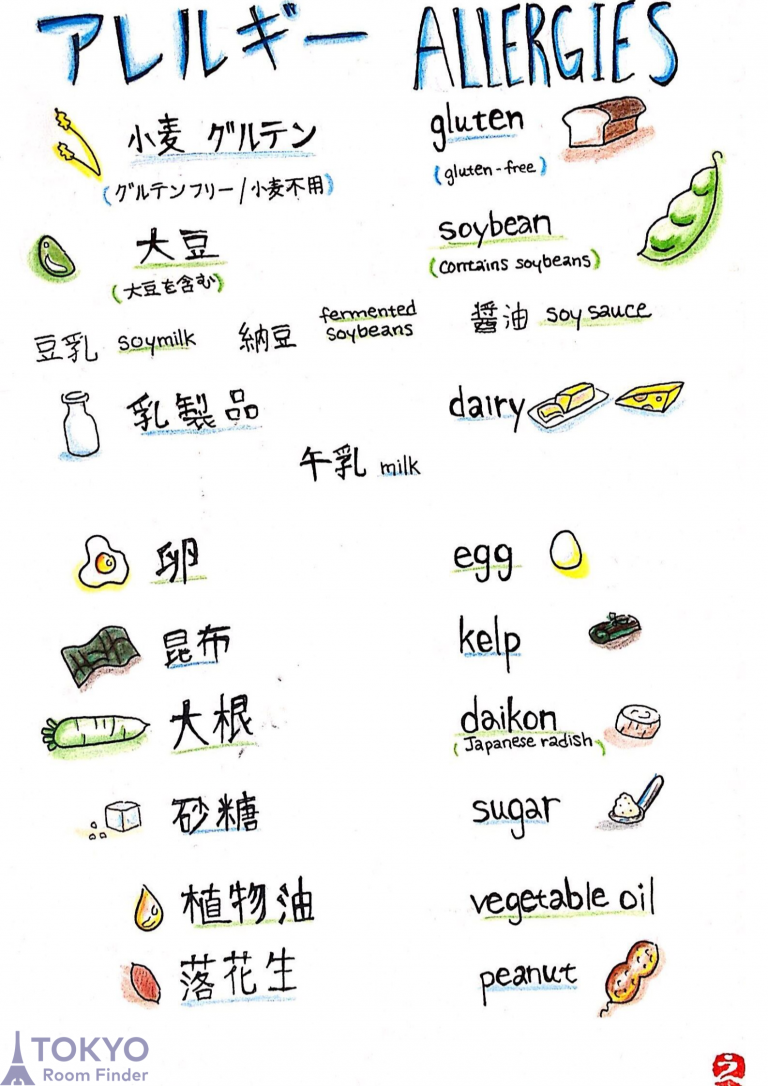 アレルギー ALLERGIES
小麦 グルテン gluten
(グルテンフリー/小麦不用) (gluten-free)
大豆 soybean
(大豆を含む) (contains soybeans)
豆乳 soymilk 納豆 fermented soybeans 醤油 soy sauce
乳製品 dairy
午乳 milk
卵 egg
昆布 kelp
大根 daikon
(Japanese radish)
砂糖 sugar
植物油 vegetable oil
落花生 peanut
TOKYO
Room Finder